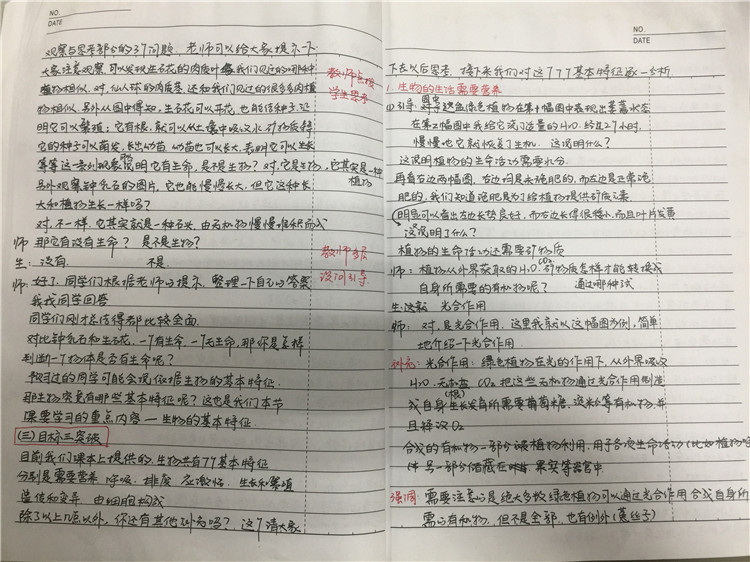 NO.
DATE
观察与思考部分的3个问题,老师可以给大家提示一下
大家注意观察,可发现生石花的肉质叶和我们见过的哪种
植物相似.对,仙人球的肉质茎,还和我们见过的很多肉植
物相似.另外从图中得知,生石花可以开花,也能结种子.证
明它可以繁殖;它有根,就可以从土壤中吸收水.矿物质等
它的种子可以萌发,长出幼苗 幼苗也可以长大,表明它可以生长
等等这一系列现象说明它有生命,是不是生物?对,它是生物,它其实是一种
植物
另外观察钟乳石的图片,它也能慢慢长大,但它这种长
大和植物生长一样吗?
对,不一样,它其实就是一种石头,由无机物慢慢堆积而成
师 那它有没有生命?是不是生物?
生:没有 不是
师:好了,同学们根据老师的提示,整理一下自己的答案
我找同学回答
同学们刚才总结得都比较全面.
对比钟乳石和生石花,一个有生命,一个无生命,那你是怎样
判断一个物体是否有生命呢?
预习过的同学可能会说,依据生物的基本特征.
那生物究竟有哪些基本特征呢?这也是我们本节
课要学习的重点内容—生物的基本特征.
(三)目标三突破
目前我们课本上提供的,生物共有7个基本特征
分别是需要营养 呼吸.排废 应激性.生长和繁殖
遗传和变异 由细胞构成
除了以上几点以外,你还有其他补充吗?这个请大家
教师点拨
学生思考
教师多级
设问引导
NO.
DATE
下去以后思考,接下来我们对这7个基本特征做一分析
1.生物的生活需要营养
(1)引导:图中这盆绿色植物在第1幅图中表现出萎蔫状态
在第2幅图中我给它浇了适量的H₂O.经过2个小时.
慢慢地它就恢复了生机.这说明什么?
这说明植物的生命活动需要水分.
再看右边两幅图,右边的是未施肥的,而左边是正常施
肥的,我们知道施肥是为了给植物提供矿质元素.
明显可以看出左边长势良好,而右边长得很矮小,而且叶片发黄
这说明了什么?
植物的生命活动还需要矿物质
师:植物从外界获取的H₂O.CO₂矿物质怎样才能转换成
自身所需要的有机物呢? 通过哪种方式
生:没氧 光合作用
师:对,是光合作用,这里我就以这幅图为例,简单
地介绍一下光合作用.
补充:光合作用:绿色植物在光的作用下,从外界吸收
H₂O 无机盐(根) CO₂ 把这些无机物通过光合作用制造
成自身生长发育所需要葡萄糖、淀粉等有机物,并
且释放O₂
合成的有机物一部分被植物利用,用于各项生命活动(比如植物呼
另一部分储藏在果实等器官中.
强调 需要注意的是绝大多数绿色植物可以通过光合作用合成自身所
需的有机物,但不是全部,也有例外(菟丝子)